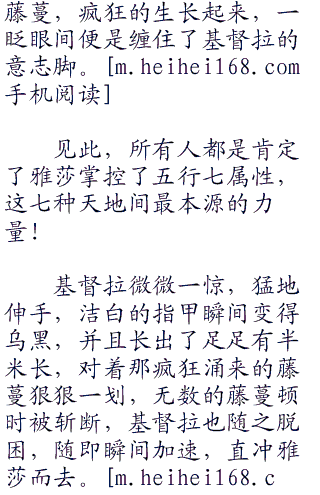 藤蔓，疯狂的生长起来，一
眨眼间便是缠住了基督拉的
意志脚。[m.heihei168.com
手机阅读]
见此，所有人都是肯定
了雅莎掌控了五行七属性，
这七种天地间最本源的力
量！
基督拉微微一惊，猛地
伸手，洁白的指甲瞬间变得
乌黑，并且长出了足足有半
米长，对着那疯狂涌来的藤
蔓狠狠一划，无数的藤蔓顿
时被斩断，基督拉也随之脱
困，随即瞬间加速，直冲雅
莎而去。[m.heihei168.c